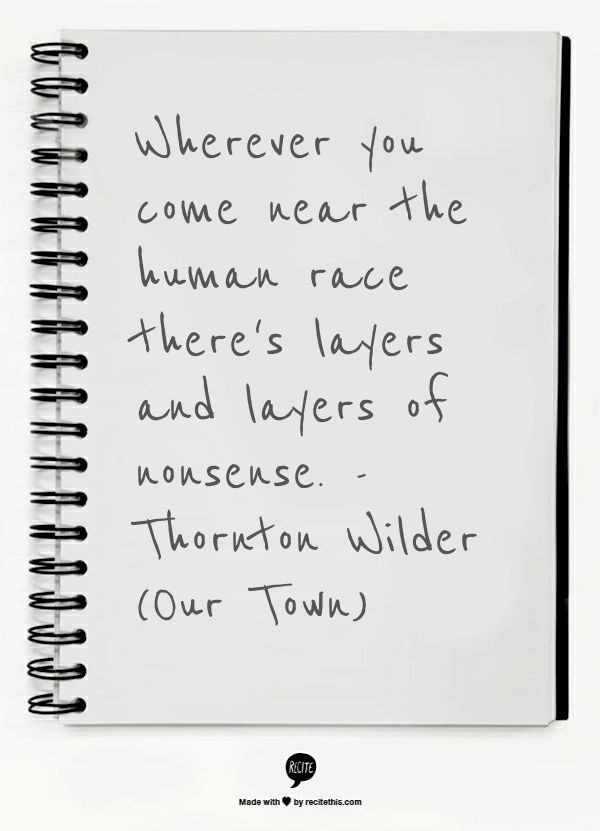 Wherever you
come near the
human race
there's layers
and layers of
nonsense. -
Thornton Wilder
(Our Town)
RECITE
Made with ♥ by recitethis.com